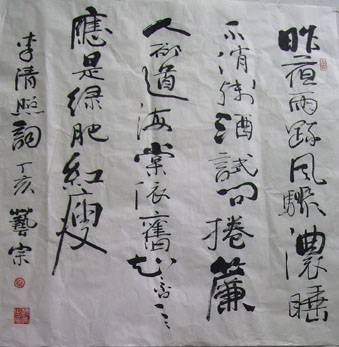 昨夜雨疎風驟濃睡
不消殘酒試問捲簾
人卻道海棠依舊知否々々
應是绿肥紅瘦
李清照詞丁亥藝宗